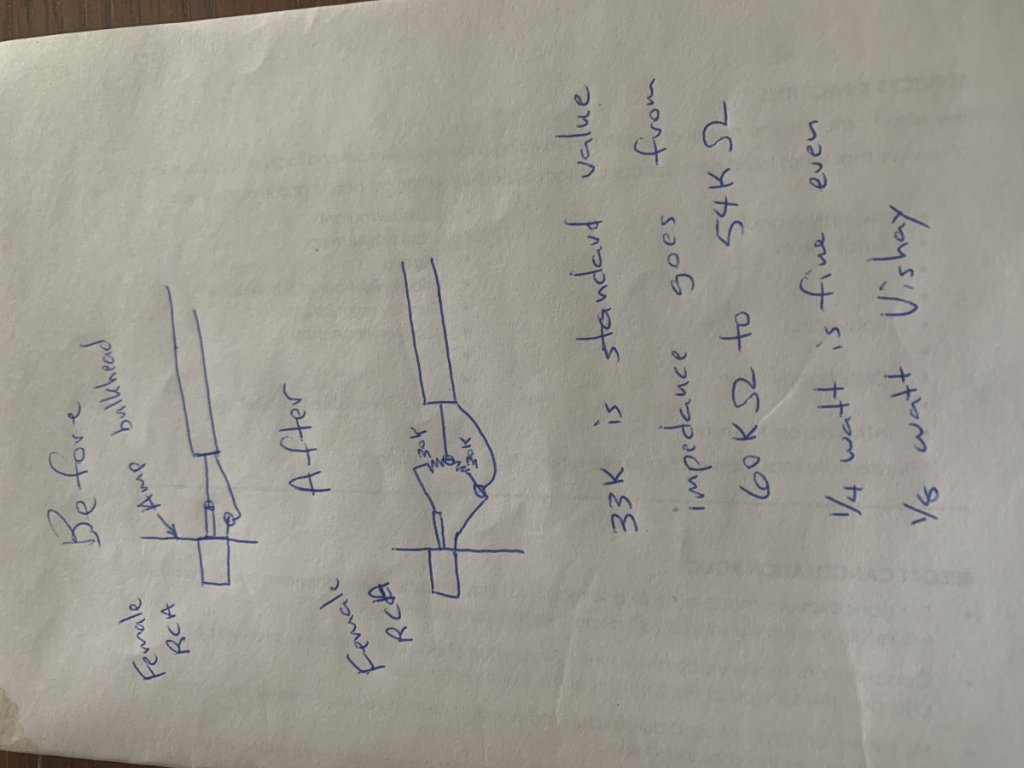 Before
Amp
bulkhead
Female
RCA
After
30K
30K
Female
RCA
33K is standard value
impedance goes from
60KΩ to 54KΩ
1/4 watt is fine even
1/8 watt Vishay